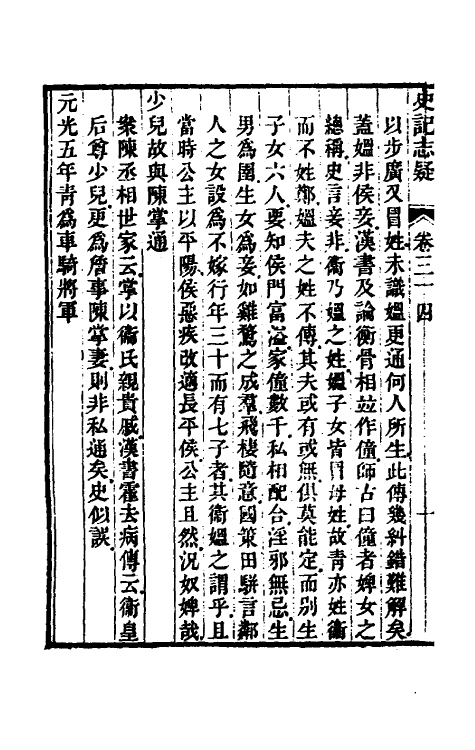 史記志疑 卷三十四 十
以步廣又冒姓未識媼更通何人所生此傳幾糾錯難解矣
蓋媼非侯妾漢書及論衡骨相竝作僮師古曰僮者婢女之
總稱史言妾非衞乃媼之姓媼子女皆冒母姓故青亦姓衞
而不姓鄭媼夫之姓不傳其夫或有或無俱莫能定而別生
子女六人要知侯門富溢家僮數千私相配合淫邪無忌生
男為圉生女為妾如雞鶩之成羣飛棲隨意國策田駢言鄰
人之女設為不嫁行年三十而有七子者其衞媼之謂乎且
當時公主以平陽侯惡疾改適長平侯公主且然況奴婢哉
少兒故與陳掌通
衆陳丞相世家云掌以衞氏親貴戚漢書霍去病傳云衞皇
后尊少兒更為詹事陳掌妻則非私通矣史似誤
元光五年青為車騎將軍